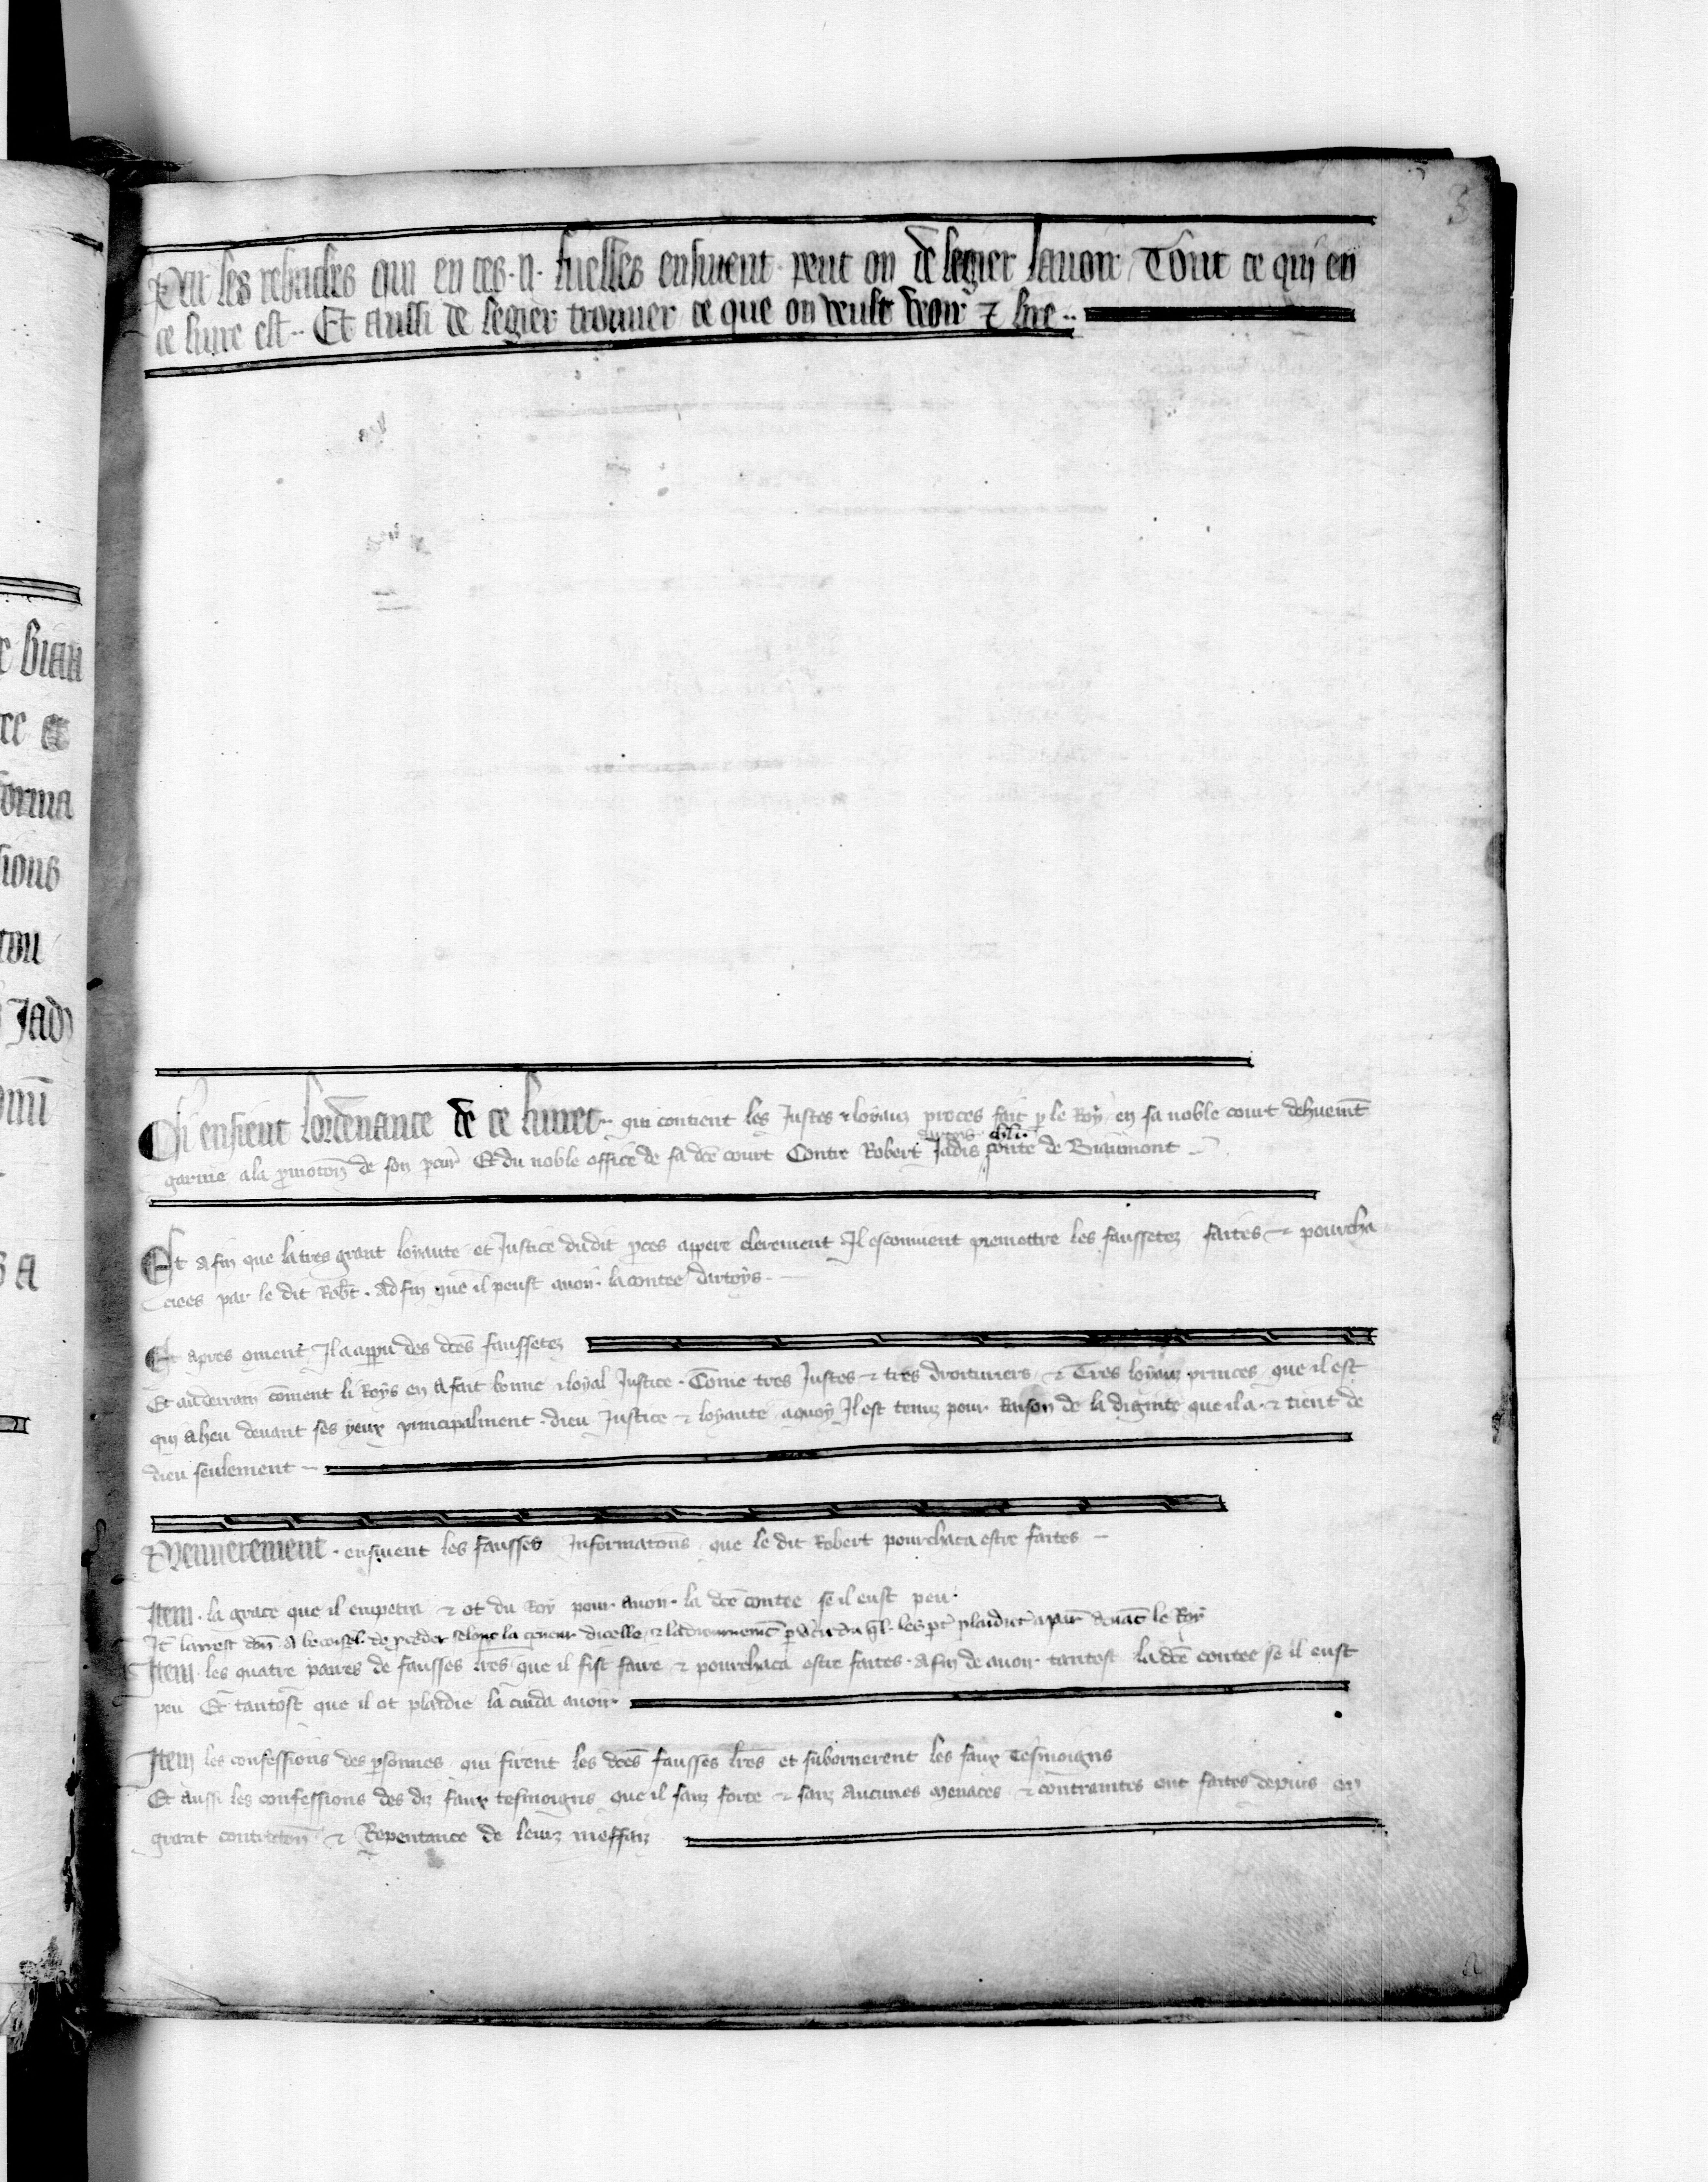 3
Par les rebriches qui en ces .II. fuelles ensivent peut on de legier savoir Tout ce qui en
ce livre est. Et aussi de legier trouver ce que on veult veoir ⁊ lire
Ci ensieut lordenance de ce livret qui contient les Justes ⁊ loyaux proces fait p le Roy en sa noble court dehuemt
dartois chlr
garnie a la pmotion de son pcur Et du noble office de sa dce court Contre Robert Jadis conte de Biaumont
Et a fin que la tres grant loyaute et Justice du dit pces appere clerement Il esconvient premettre les faussetez faites ⁊ pourcha
ciees par le dit Robt. Ad fin que il peust avoir la contee dartoys
Et apres coment Il a apparu des dces faussetez
Et au derrain coment li Roys en a fait bonne ⁊ loyal Justice. Come tres Justes ⁊ tres droituriers ⁊ Tres loyaux princes que il est
qui a heu devant ses yeux principalment dieu Justice ⁊ loyaute a quoy Il est tenuz pour Raison de la dignite que il a ⁊ tient de
dieu seulement
Premierement ensivent les fausses Informations que le dit Robert pourchaca estre faites
Item la grace que il empetra ⁊ ot du Roy pour avoir la dce contee se il eust peu
It larrest don a le conseil de proceder selonc la teneur dicelle ⁊ ladiournement les pt plaidiet a devat le Roy
Item les quatre paires de fausses lres que il fist faire ⁊ pourchaca estre faites a fin de avoir tantost la dce contee se il eust
peu Et tantost que il ot plaidie la cuida avoir
Item les confessions des psonnes qui firent les dces fausses lres et subornerent les faux Tesmoigns
Et aussi les confessions des diz faux tesmoigns que il sanz force ⁊ sanz aucunes menaces ⁊ contraintes ont faites depuis en
grant contricion ⁊ Repentance de leurz meffaiz